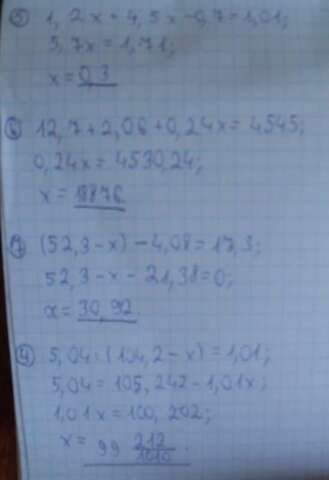 ⑤ 1,2x+4,5x-0,7=1,01;
5,7x=1,71;
x=0,3
⑥ 12,7+2,06+0,24x=4545;
0,24x=4530,24;
x=18876
⑦ (52,3-x)-4,08=17,3;
52,3-x-21,38=0;
x=30,92.
④ 5,04:(104,2-x)=1,01;
5,04=105,242-1,01x;
1,01x=100,202;
x=99 212/1010.